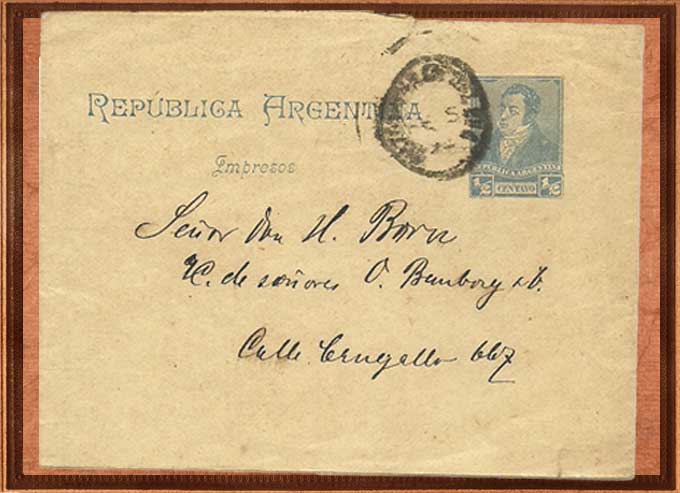 REPÚBLICA ARGENTINA
Impresos
REPUBLICA ARGENTINA
1/2 CENTAVO 1/2
Señor Don H. Born
C. de señores O. Bemberg
Calle 667